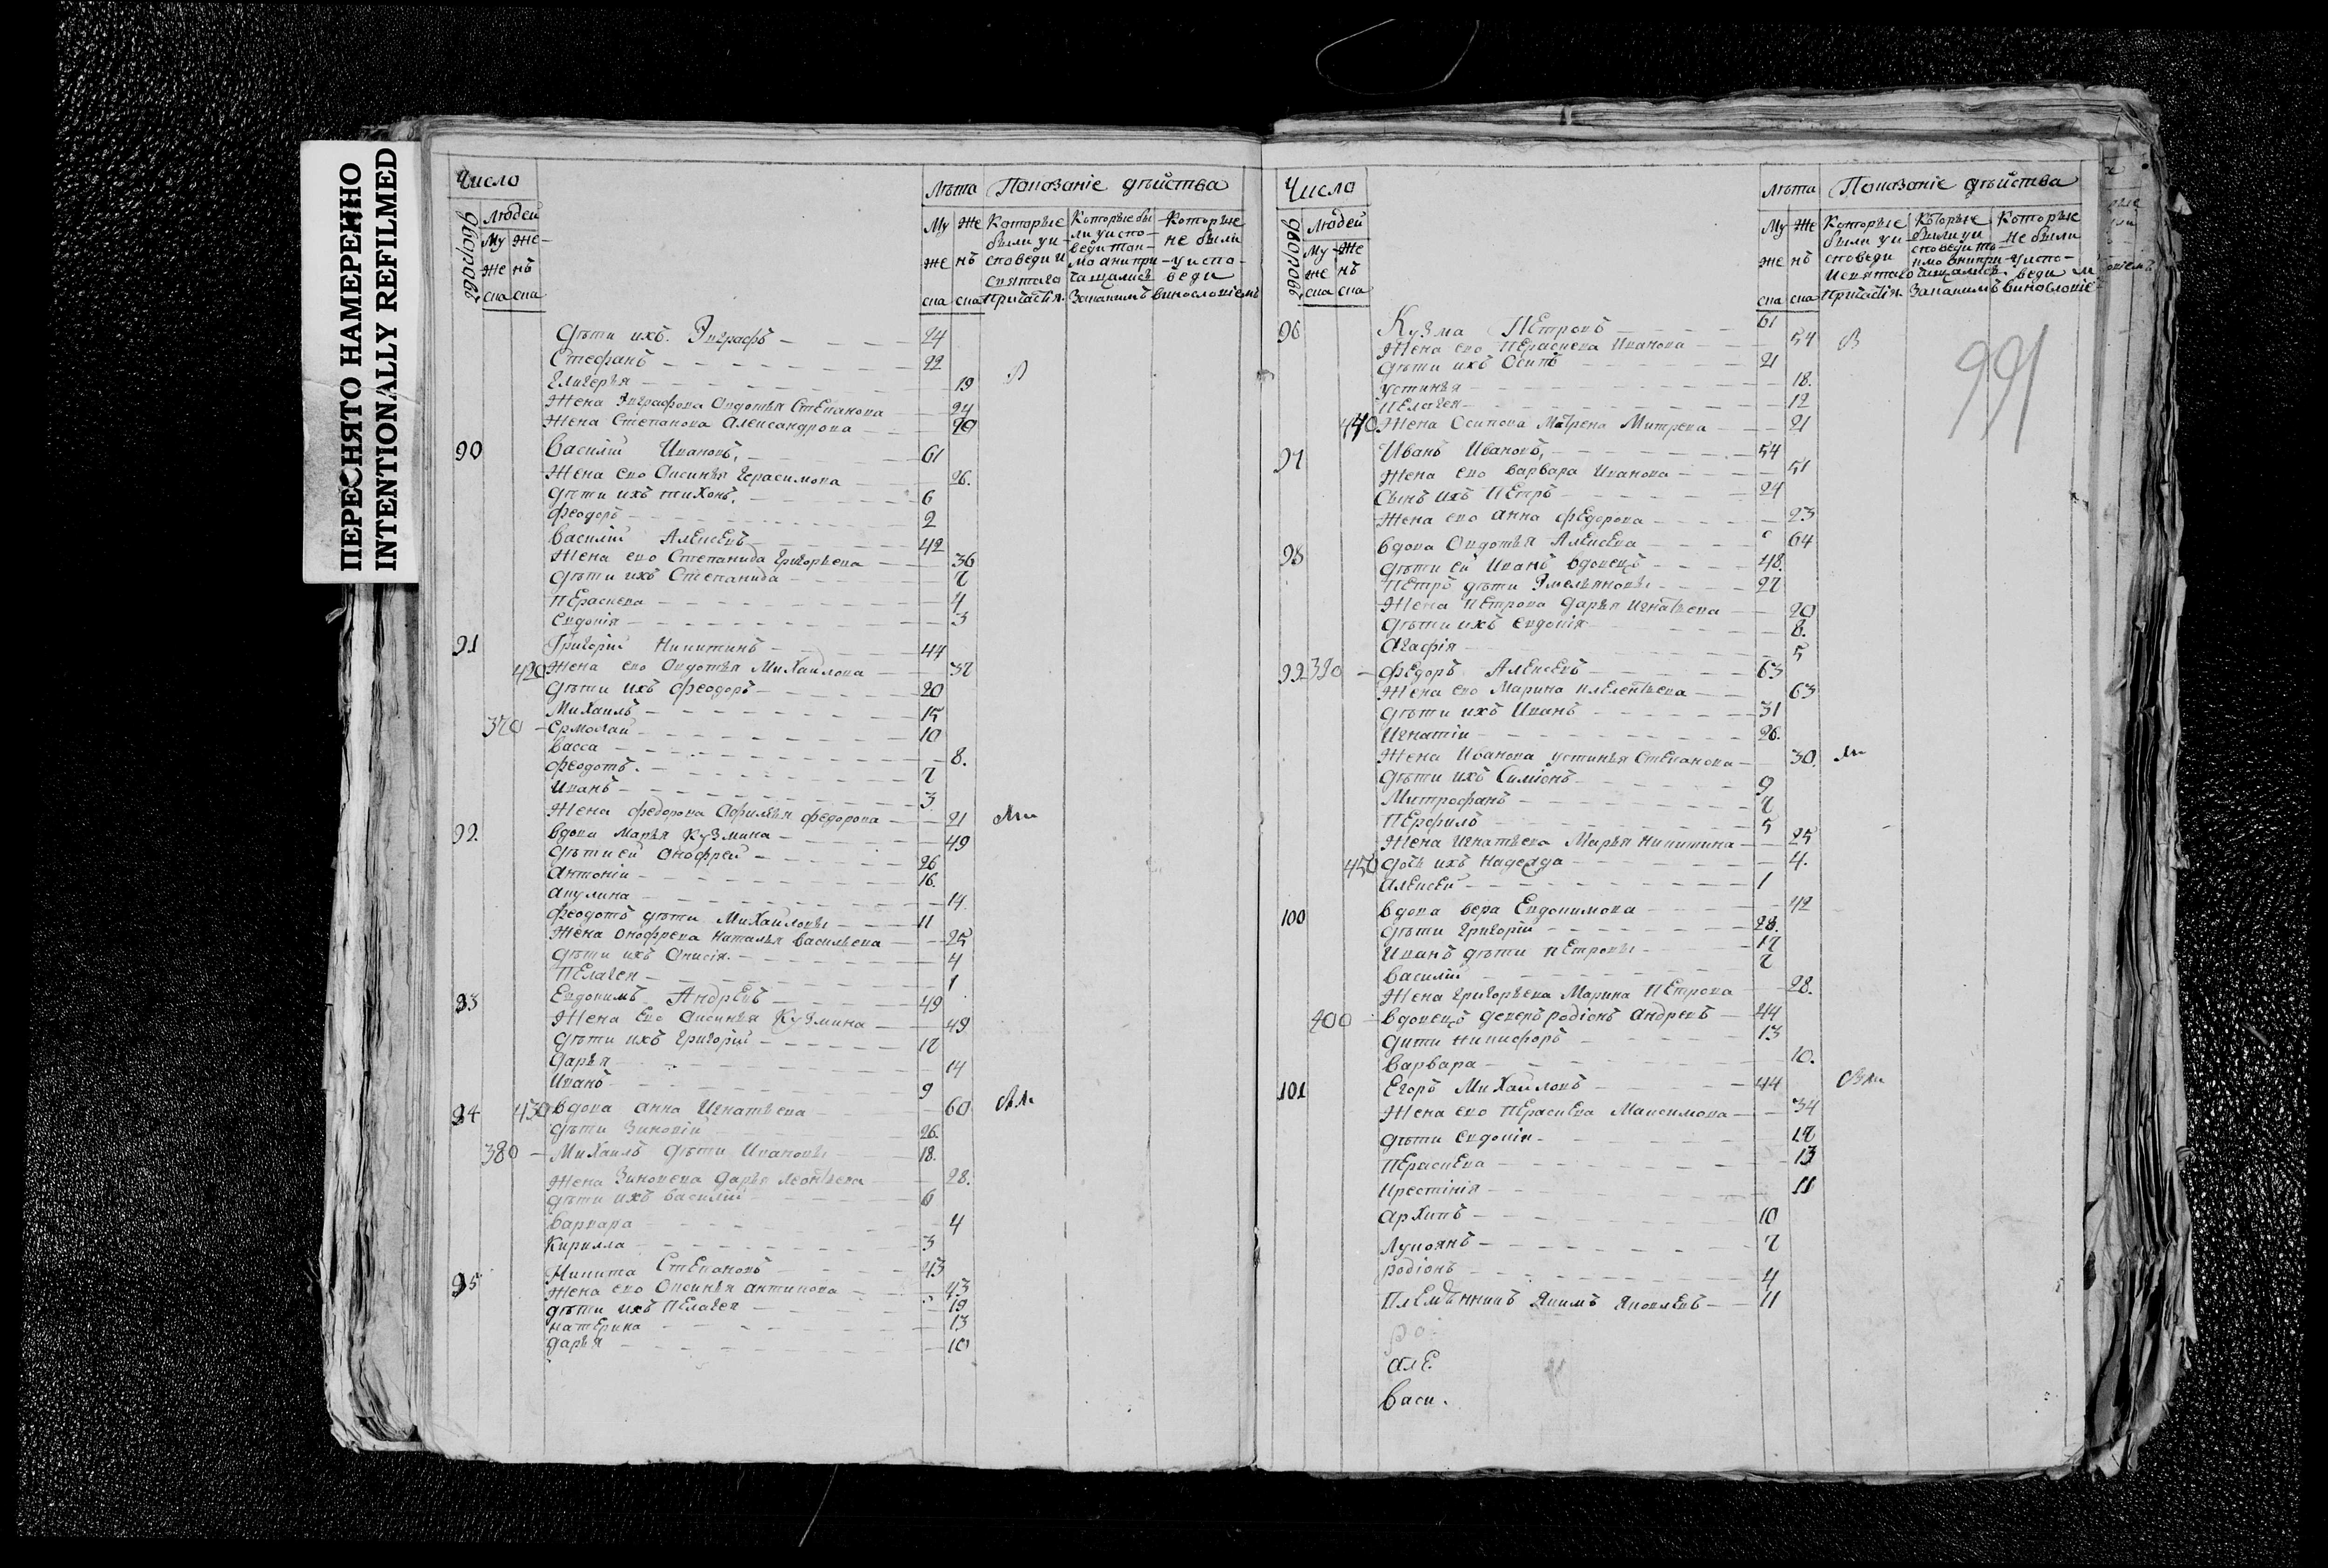 ПЕРЕСНЯТО НАМЕРЕННО
INTENTIONALLY REFILMED
Число
Лѣта Показаніе дѣйства
дворовъ Людей
Му Же
же нѣ
ска ска
Му Же Которые были у исповеди и святаго причастія
Которые были у исповеди токмо а не причащались
Которые не были у исповеди
дѣти ихъ. Эвграфъ 24
Стефанъ 22
Гликерья 19
Жена Эвграфова Овдотья Степанова 24
Жена Степанова Александрова 20
90 Василій Ивановъ, 61
Жена ево Оксинья Герасимова 26.
дѣти ихъ тихонъ. 6
феодоръ 2
Василій Алексеевъ 42
Жена ево Степанида Григорьева 36
дѣти ихъ Степанида 7
Пераскева 4
Евдокія 3
91 Григорій Никитинъ 44
420 Жена ево Овдотья Михайлова 37
дѣти ихъ феодоръ 20
Михаилъ 15
370 Ермолай 10
Васса 8.
феодотъ. 7
Иванъ 3
Жена федорова Офимья федорова 21
92. Вдова Марья Кузмина 49
дѣти ей Онофрей 26
Антоній 16.
Акулина 14.
феодотъ дѣти Михайловы 11
Жена Онофрева Наталья Васильева 25
дѣти ихъ Онисія. 4
Пелагея 1
93 Евдокимъ Андреевъ 49
Жена Ево Оксинья Кузмина 49
дѣти ихъ Григорій 17
дарья 14
Иванъ 9
94 430 Вдова анна Игнатьева 60
дѣти Зиновій 26.
380 Михаилъ дѣти Ивановы 18.
Жена Зиновева дарья Леонтьева 28.
дѣти ихъ василій 6
Варвара 4
Кирилла 3
95 Никита Степановъ 43
Жена ево Оксинья антипова 43
дѣти ихъ Пелагея 19
катерина 13
дарья 10
Число
Лѣта Показаніе дѣйства
дворовъ Людей
Му Же
же нѣ
ска ска
991
96 Кузма Петровъ 61
Жена ево Пераскева Иванова 54
дѣти ихъ Осипъ 21
устинья 18.
Пелагея 12
440 Жена Осипова Матрена Митрева 21
97 Иванъ Ивановъ, 54
Жена ево варвара Иванова 51
Сынъ ихъ Петръ 24
Жена ево анна федорова 23
98 вдова Овдотья Алексева 64
дѣти ей Иванъ вдовецъ 48.
Петръ дѣти Эмельяновы 27
Жена Петрова дарья Игнатьева 20
дѣти ихъ евдокія 8.
Агафія 5
99 390 федоръ Алексеевъ 63
Жена ево Марина 63
дѣти ихъ Иванъ 31
Игнатій 26.
Жена Иванова устинья Степанова 30.
дѣти ихъ Симіонъ 9
Митрофанъ 7
Перфилъ 5
Жена Игнатьева Марья Никитина 25
450 дочь ихъ Надежда 4.
Алексей 1
100 вдова вера Евдокимова 42
дѣти Григорій 28.
Иванъ дѣти Петровы 17
Василій 7
Жена Григорьева Марина Петрова 28.
400 вдовецъ деверь родіонъ андревъ 44
дити никифоръ 13
Варвара 10.
101 Егоръ Михайловъ 44
Жена ево Пераскева Максимова 34
дѣти евдокія 17
Пераскева 13
Крестинія 11
архипъ 10
Лукоянъ 7
родіонъ 4
Племянникъ Якимъ Яковлевъ 11
ро
але
васи.